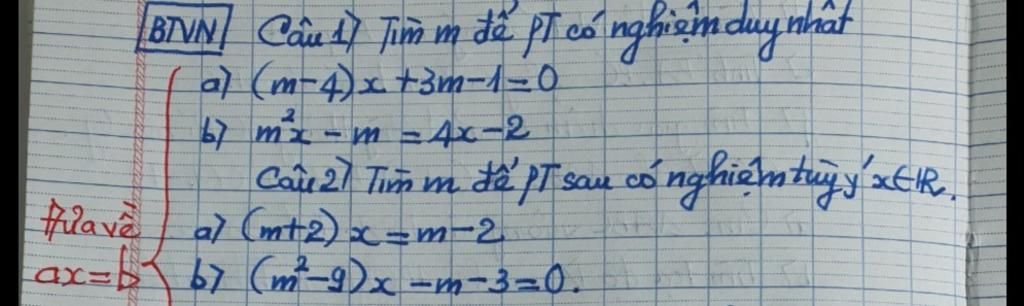 BTVN Câu 1) Tìm m để PT có nghiệm duy nhất
a) (m-4)x +3m-1=0
b) m²x - m = 4x-2
Câu 2) Tìm m để PT sau có nghiệm tùy ý x∈R.
a) (m+2) x = m-2
b) (m²-9)x - m - 3 = 0.
Đưa về
ax=b